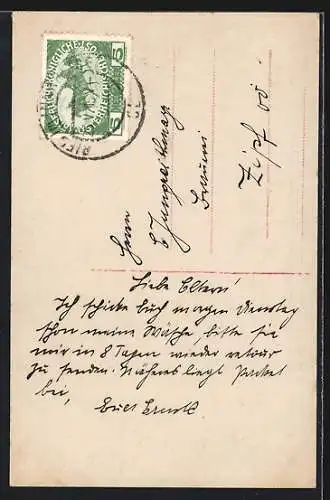 5 5
Herrn
Zipf OÖ
Liebe Eltern!
Ich schicke Euch morgen Dienstag
schon meine Wäsche, bitte sie
mir in 8 Tagen wieder retour
zu senden. Näheres liegt Packet
bei,
Euer Ernst